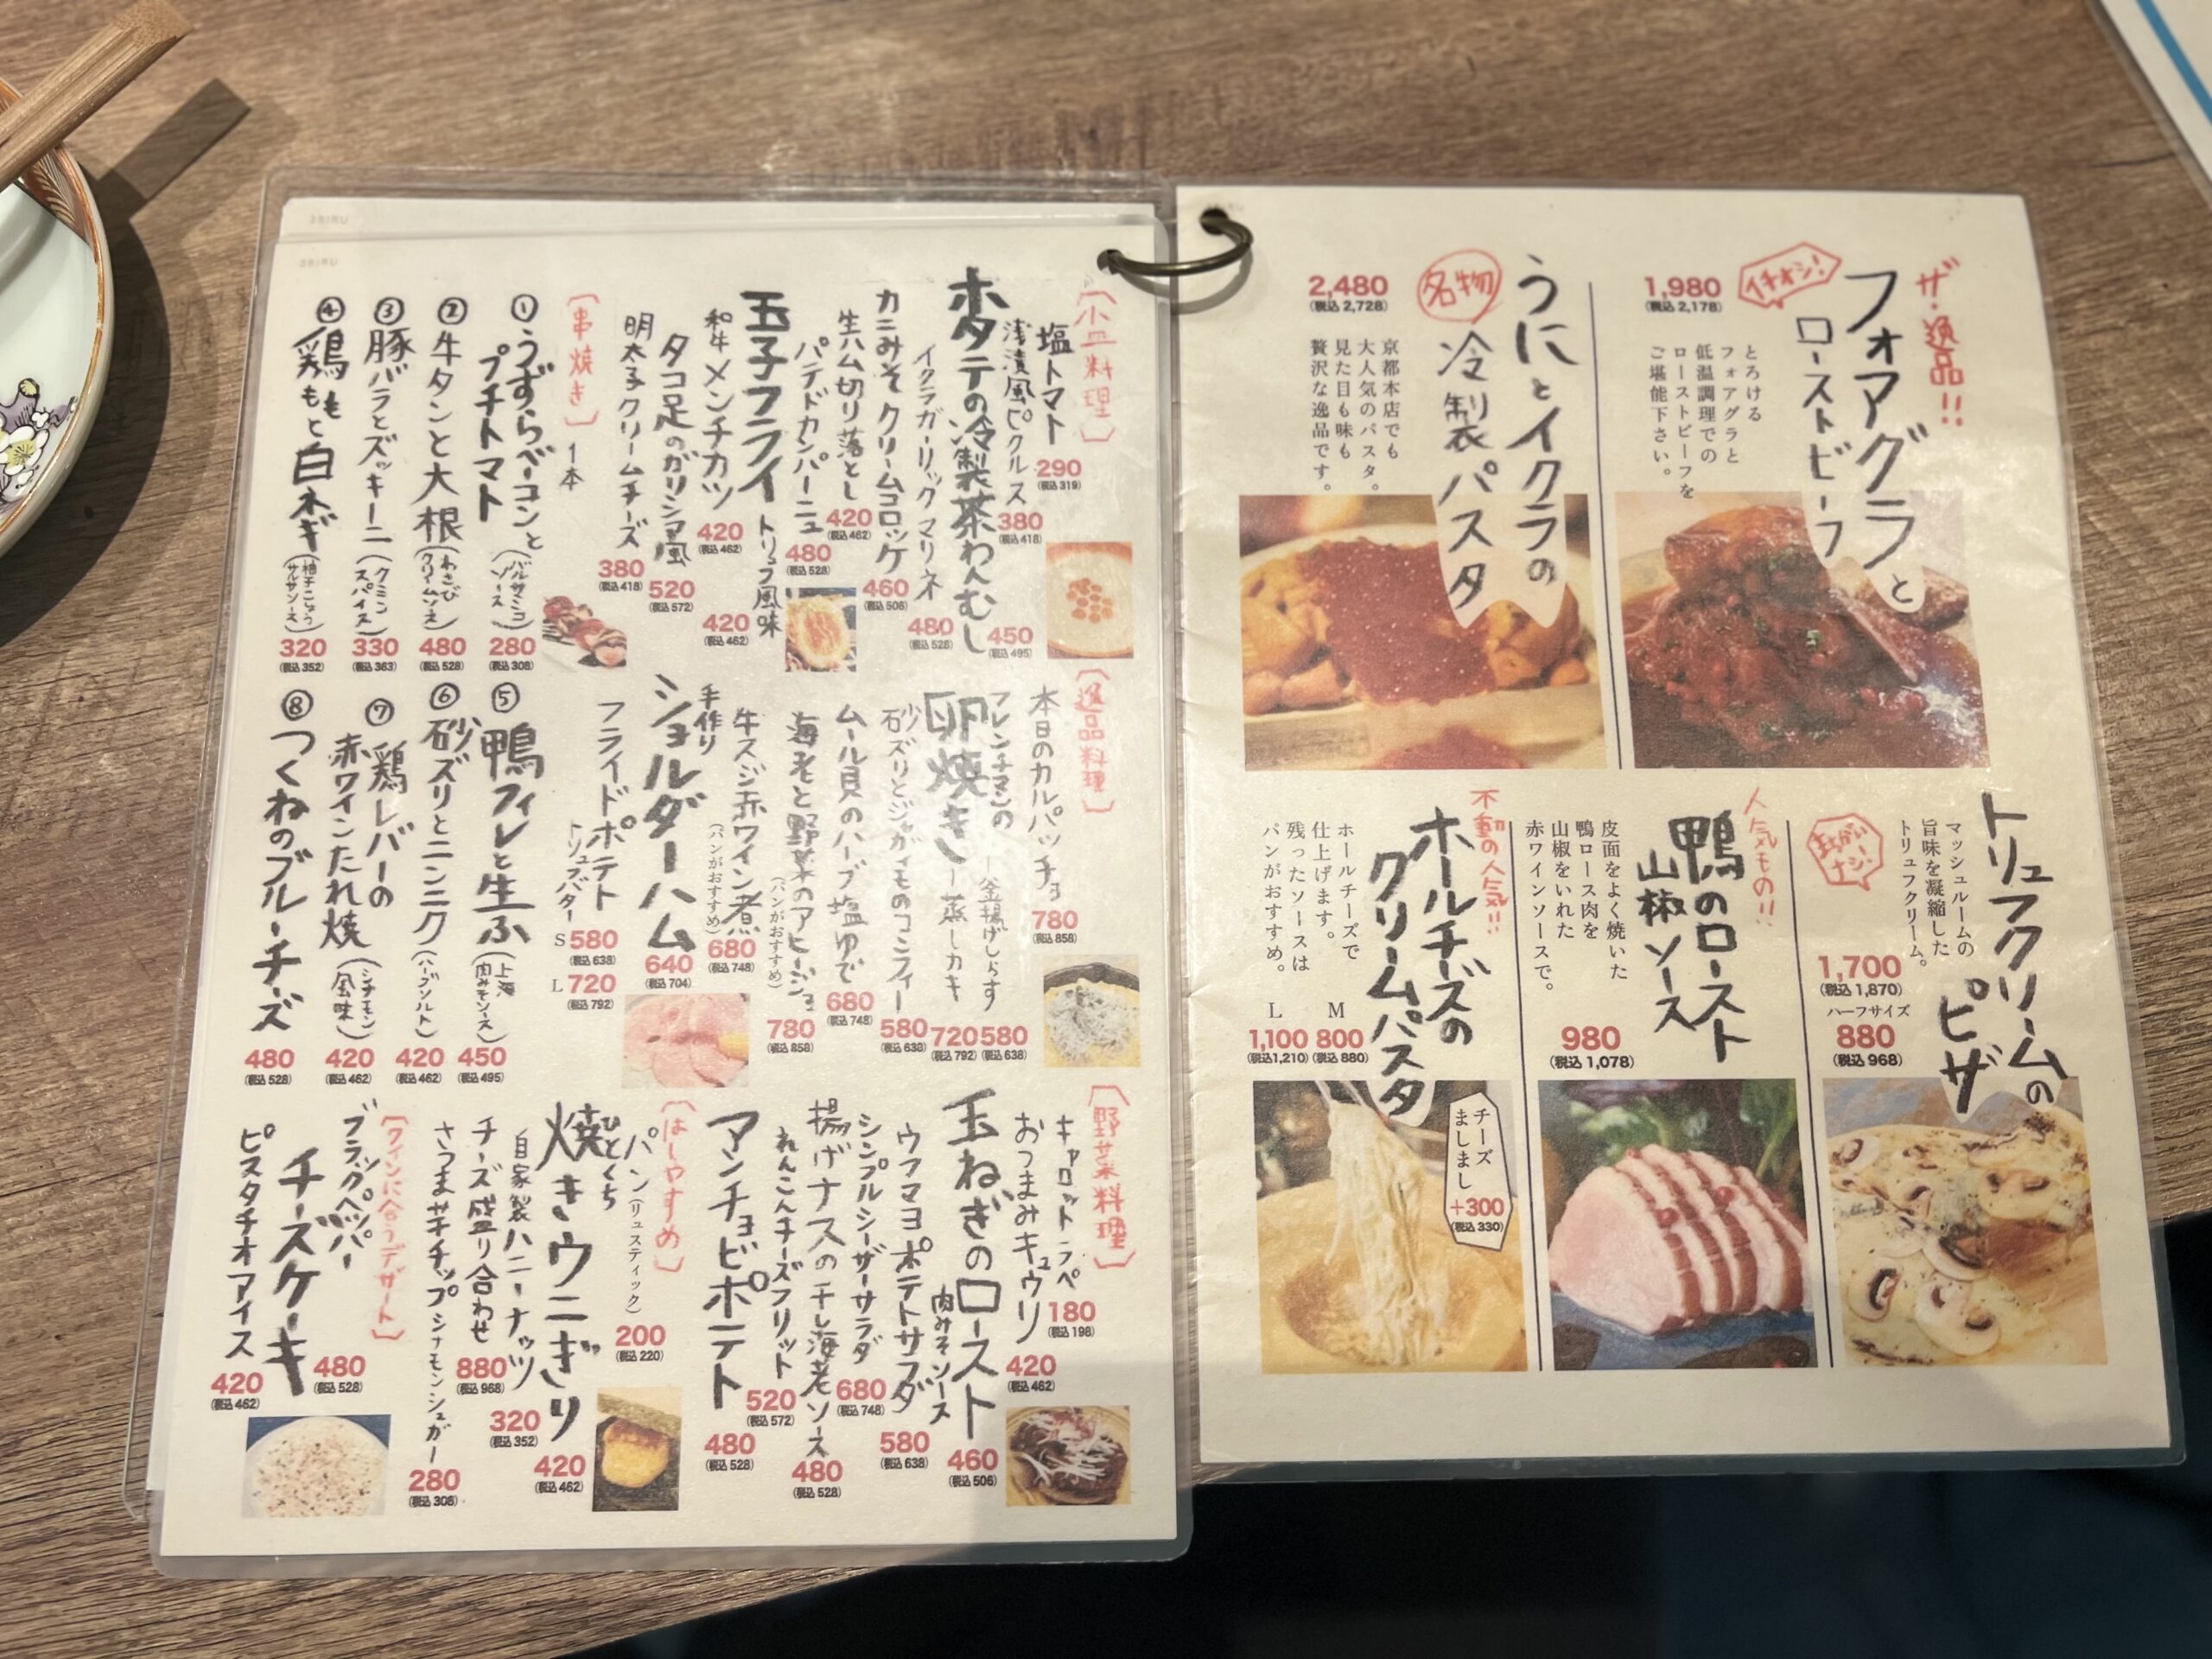 ザ・逸品!!
フォアグラと
ローストビーフ
イチオシ!
1,980
(税込 2,178)
とろける
フォアグラと
低温調理での
ローストビーフを
ご堪能下さい。
うにとイクラの
冷製パスタ
名物
2,480
(税込 2,728)
京都本店でも
大人気のパスタ。
見た目も味も
贅沢な逸品です。
トリュフクリームの
ピザ
マッシュルームの
旨味を凝縮した
トリュフクリーム。
まちがい
ナシ!
1,700
(税込 1,870)
ハーフサイズ
880
(税込 968)
人気もの!!
鴨のロースト
山椒ソース
皮面をよく焼いた
鴨ロース肉を
山椒をいれた
赤ワインソースで。
980
(税込 1,078)
不動の人気!!
ホールチーズの
クリームパスタ
ホールチーズで
仕上げます。
残ったソースは
パンがおすすめ。
M
800
(税込 880)
L
1,100
(税込1,210)
チーズ
ましまし
+300
(税込 330)
[小皿料理]
塩トマト
290
(税込 319)
浅漬風ピクルス
380
(税込 418)
ホタテの冷製茶わんむし
450
(税込 495)
イクラガーリックマリネ
480
(税込 528)
カニみそクリームコロッケ
460
(税込 506)
生ハム切り落とし
420
(税込 462)
パテドカンパーニュ
480
(税込 528)
玉子フライ トリュフ風味
420
(税込 462)
和牛メンチカツ
420
(税込 462)
タコ足のガリシア風
520
(税込 572)
明太子クリームチーズ
380
(税込 418)
[串焼き] 1本
①うずらベーコンと
プチトマト
(バルサミコ
ソース)
280
(税込 308)
②牛タンと大根
(わさび
クリームソース)
480
(税込 528)
③豚バラとズッキーニ
(クミン
スパイス)
330
(税込 363)
④鶏ももと白ネギ
(柚子こしょう
サルサソース)
320
(税込 352)
⑤鴨フィレと生ふ
(上海
肉みそソース)
450
(税込 495)
⑥砂ズリとニンニク
(ハーブソルト)
420
(税込 462)
⑦鶏レバーの
赤ワインたれ焼
(シナモン
風味)
420
(税込 462)
⑧つくねのブルーチーズ
480
(税込 528)
[逸品料理]
本日のカルパッチョ
780
(税込 858)
フレンチマンの
卵焼き
釜揚げしらす
580
(税込 638)
蒸しカキ
720
(税込 792)
砂ズリとジャガイモのコンフィー
580
(税込 638)
ムール貝のハーブ塩ゆで
680
(税込 748)
海老と野菜のアヒージョ
(パンがおすすめ)
780
(税込 858)
牛スジ赤ワイン煮
(パンがおすすめ)
680
(税込 748)
手作り
ショルダーハム
640
(税込 704)
フライドポテト
トリュフバター
S 580
(税込 638)
L 720
(税込 792)
[野菜料理]
キャロットラペ
180
(税込 198)
おつまみキュウリ
420
(税込 462)
玉ねぎのロースト
肉みそソース
460
(税込 506)
ウフマヨポテトサラダ
580
(税込 638)
シンプルシーザーサラダ
680
(税込 748)
揚げナスの干し海老ソース
480
(税込 528)
れんこんチーズフリット
520
(税込 572)
アンチョビポテト
480
(税込 528)
[はしやすめ]
パン(リュスティック)
200
(税込 220)
ひとくち
焼きウニぎり
420
(税込 462)
自家製ハニーナッツ
320
(税込 352)
チーズ盛り合わせ
880
(税込 968)
さつま芋チップ シナモンシュガー
280
(税込 308)
[ワインに合うデザート]
ブラックペッパー
チーズケーキ
480
(税込 528)
ピスタチオアイス
420
(税込 462)